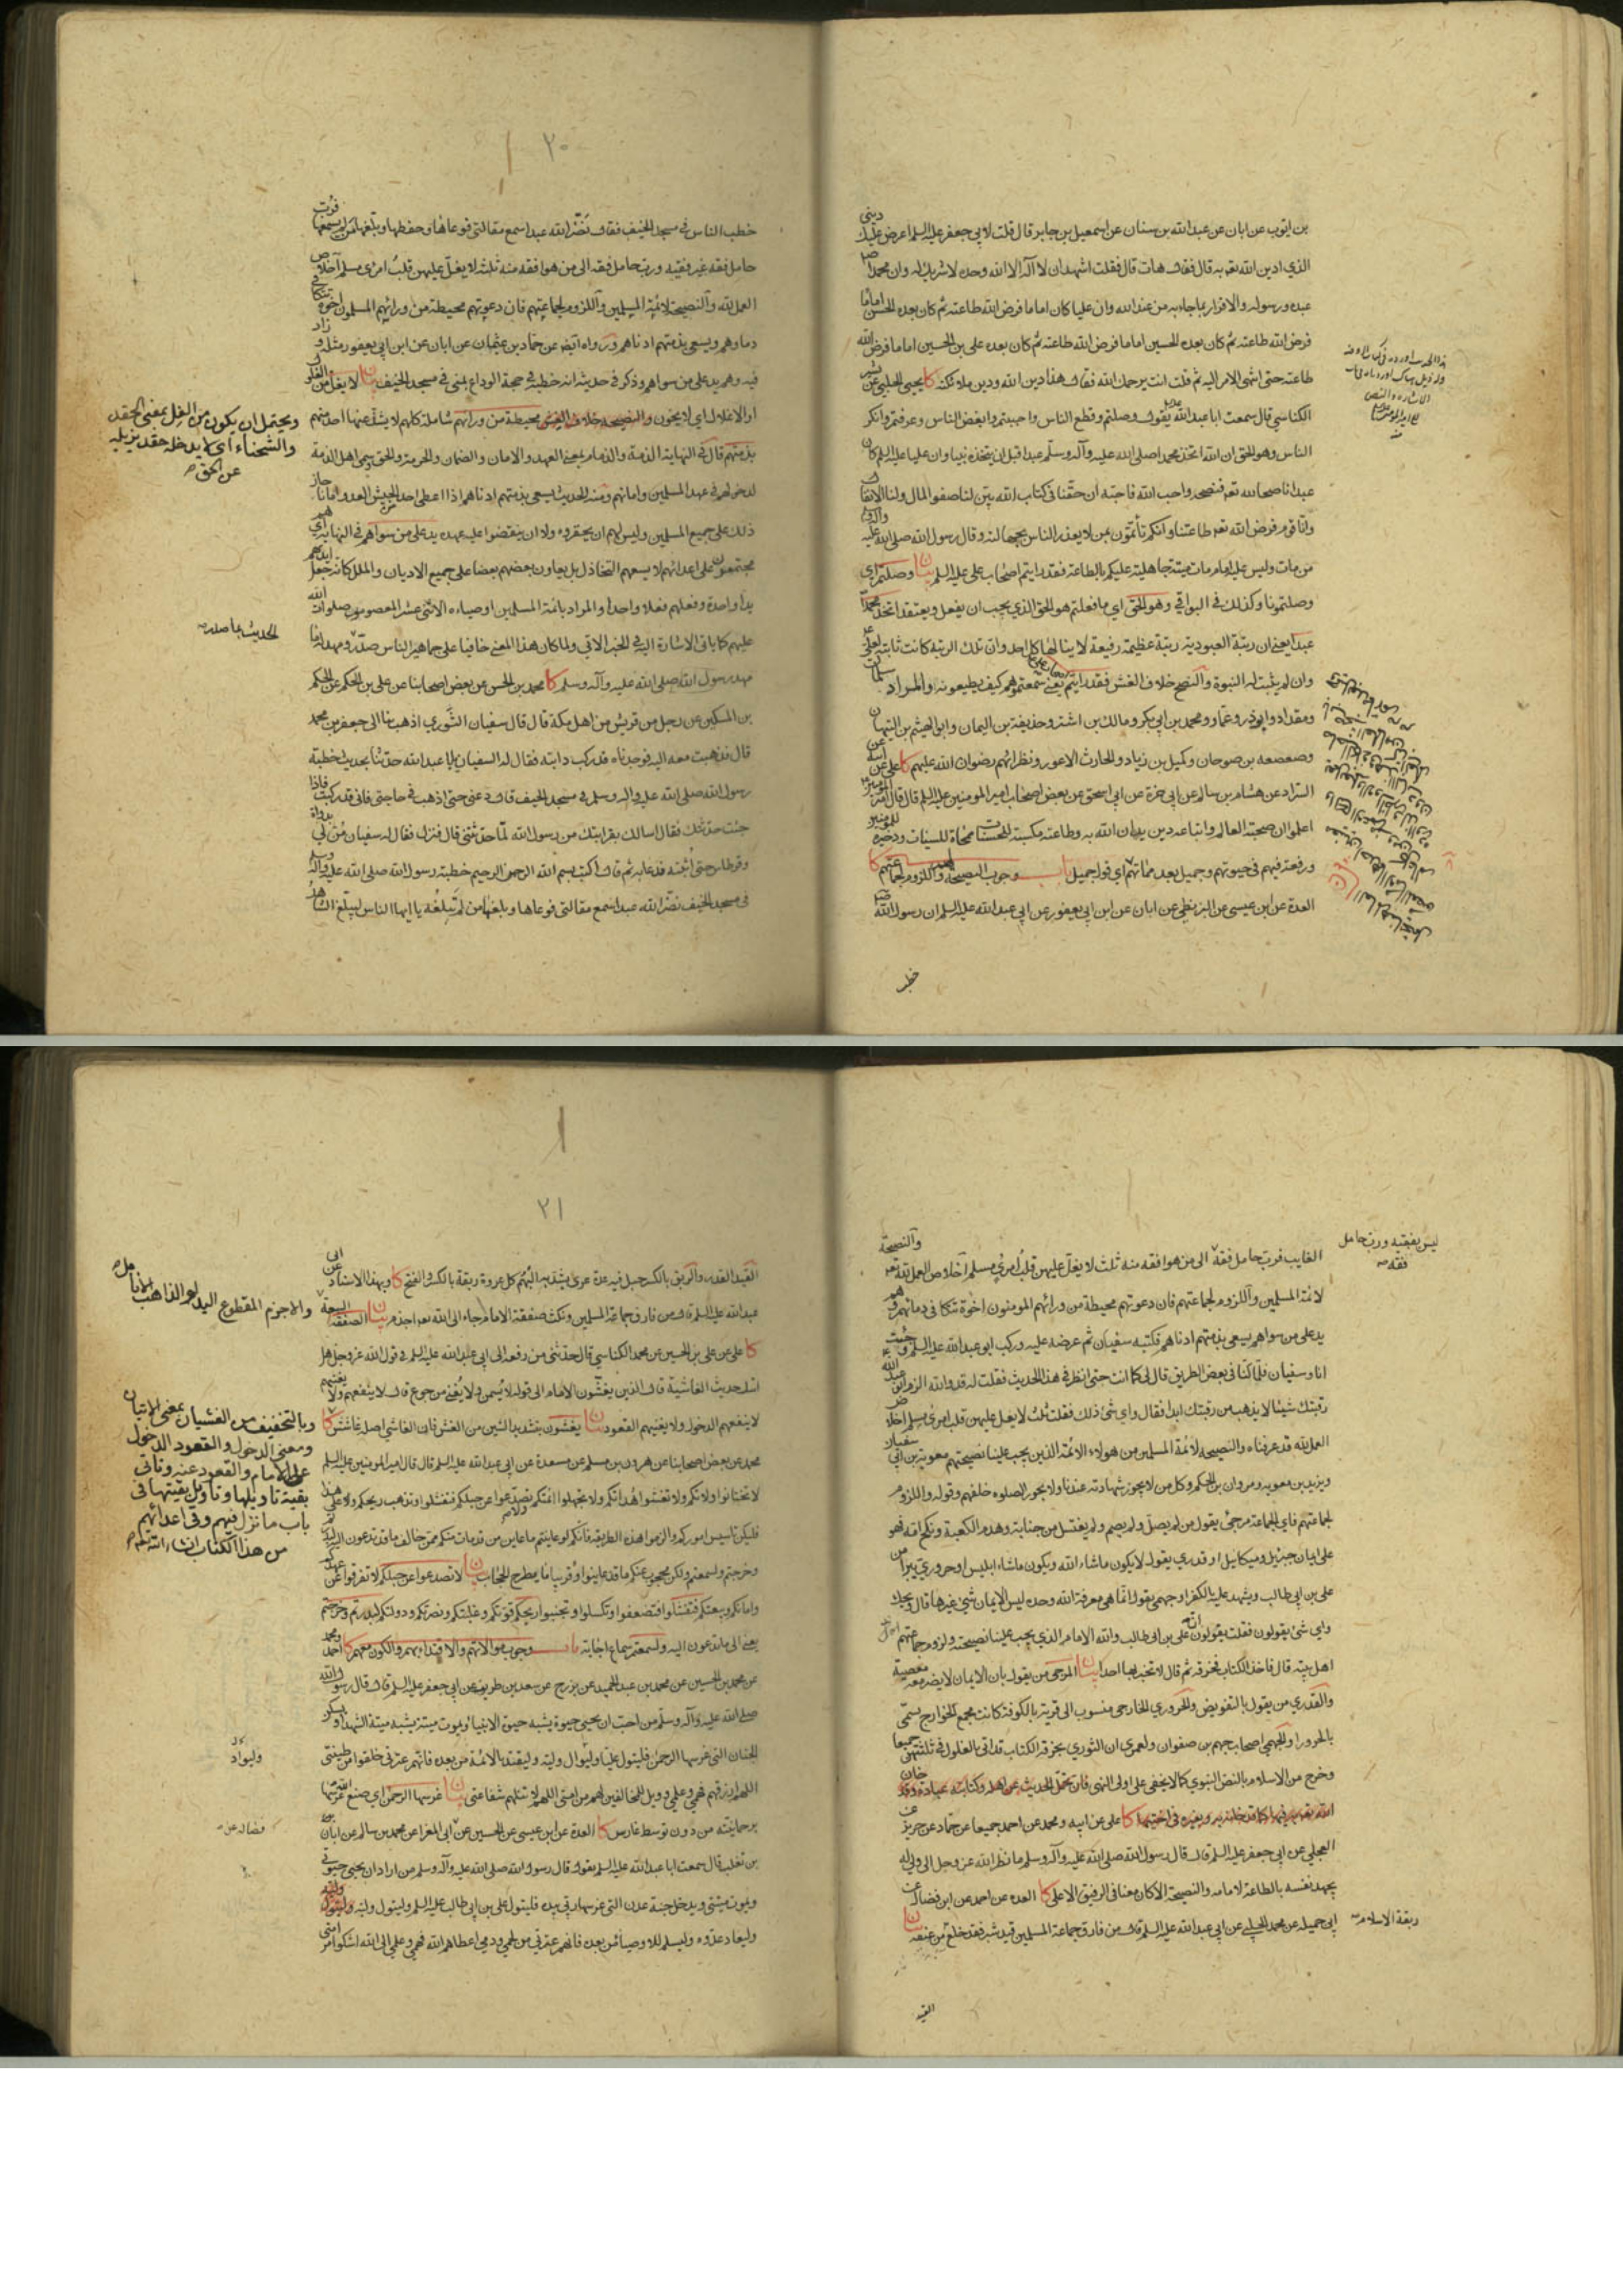 بن ايوب عن ابان عن عبدالله بن سنان عن اسمعيل بن جابر قال قلت لابي جعفر عليه السلم اعرض عليك ديني
الذي ادين الله تعه به قال فقال هات قال فقلت اشهد ان لا اله الا الله وحده لا شريك له وان محمدا
عبده ورسوله والاقرار بما جاء به من عند الله وان عليا كان اماما فرض الله طاعته ثم كان بعده الحسن اماما
فرض الله طاعته ثم كان بعده الحسين اماما فرض الله طاعته ثم كان بعده علي بن الحسين اماما فرض الله
طاعته حتى انتهى الامر اليه ثم قلت انت يرحمك الله فقال هذا دين الله ودين ملائكته كا يحيى الحلبي عن بشير
الكناسي قال سمعت ابا عبدالله يقول وصلتم وقطع الناس واحببتم وابغض الناس وعرفتم وانكر
الناس وهو الحق ان الله اتخذ محمدا صلى الله عليه وآله وسلم عبدا قبل ان يتخذه نبيا وان عليا عليه السلم كان
عبدا ناصحا لله تعه فنصحه واحب الله فاحبه ان حقنا في كتاب الله بين لنا صفوا المال ولنا الانفال
وانا قوم فرض الله تعه طاعتنا وانكم تأتمون بمن لا يعذر الناس بجهالته وقال رسول الله صلى الله عليه وآله
من مات وليس عليه امام مات ميتة جاهلية عليكم بالطاعة فقد رايتم اصحاب علي عليه السلم بيان وصلتم اي
وصلتمونا وكذلك في البواقي وهو الحق اي ما فعلتم هو الحق الذي يجب ان يفعل ويعتقد اتخذ محمدا
عبدا يعني ان رتبة العبودية رتبة عظيمة رفيعة لا ينالها كل احد وان تلك الرتبة كانت ثابتة لعلي
وان لم يثبت له النبوة والنصح خلاف الغش فقد رايتم يعني سمعتموهم كيف يطيعونه والمراد سلمان
ومقداد وابو ذر وعمار ومحمد بن ابي بكر ومالك بن اشتر وحذيفة بن اليمان وابو الهيثم بن التيهان
وصعصعه بن صوحان وكميل بن زياد والحارث الاعور ونظرائهم رضوان الله عليهم كا علي عن ابيه عن
السراد عن هشام بن سالم عن ابي حمزة عن ابي اسحق عن بعض اصحاب امير المومنين عليه السلم قال قال امير المومنين
اعلموا ان صحبة العالم واتباعه دين يدان الله به وطاعته مكسبة للحسنات ممحاة للسيئات وذخيرة للمومنين
ورفعة فيهم في حيوتهم وجميل بعد مماتهم اي قول جميل باب وجوب النصيحة لهم واللزوم لجماعتهم كا
العدة عن ابن عيسى عن البزنطي عن ابان عن ابن ابي يعفور عن ابي عبدالله عليه السلم ان رسول الله
خطب
٢٠
خطب الناس في مسجد الخيف فقال نضر الله عبدا سمع مقالتي فوعاها وحفظها وبلغها من لم يسمعها فرب
حامل فقه غير فقيه ورب حامل فقه الى من هو افقه منه ثلث لا يغل عليهن قلب امرئ مسلم اخلاص
العمل لله والنصيحة لائمة المسلمين واللزوم لجماعتهم فان دعوتهم محيطة من ورائهم المسلمون اخوة تتكافى
دماوهم ويسعى بذمتهم ادناهم ورواه ايض عن حماد بن عثمان عن ابان عن ابن ابي يعفور مثله وزاد
فيه وهم يد على من سواهم وذكر في حديثه انه خطبة في حجة الوداع بمنى في مسجد الخيف بيان لا يغل من الغلول
او الاغلال اي لا يخون والنصيحة خلاف الغش محيطة من ورائهم شاملة كلهم لا يشذ عنها احد منهم
ويحتمل ان يكون من الغل بمعنى الحقد
والشحناء اي لا يدخله حقد يزيله
عن الحق
بذمتهم قال في النهاية الذمة والذمام بمعنى العهد والامان والضمان والحرمة والحق وسمي اهل الذمة
لدخولهم في عهد المسلمين وامانهم ومنه الحديث يسعى بذمتهم ادناهم اذا اعطى احد الجيش العدو امانا جاز
ذلك على جميع المسلمين وليس لهم ان يحقروه ولا ان ينقضوا عليه عهده يد على من سواهم في النهاية اي هم
مجتمعون على اعدائهم لا يسعهم التخاذل بل يعاون بعضهم بعضا على جميع الاديان والملل كانه جعل ايديهم
يدا واحدة وفعلهم فعلا واحدا والمراد بائمة المسلمين اوصياءه الاثني عشر المعصومون صلوات الله
عليهم كما ياتي الاشارة اليه في الخبر الاتي ولما كان هذا المعنى خافيا على جماهير الناس
مهد رسول الله صلى الله عليه وآله وسلم كا محمد بن الحسن عن بعض اصحابنا عن علي بن الحكم عن الحكم
بن المسكين عن رجل من قريش من اهل مكة قال قال سفيان الثوري اذهب بنا الى جعفر بن محمد
قال فذهبت معه اليه فوجدناه قد ركب دابته فقال له السفيان يا ابا عبدالله حدثنا بحديث خطبة
رسول الله صلى الله عليه واله وسلم في مسجد الخيف قال دعني حتى اذهب في حاجتي فاني قد ركبت فاذا
جئت حدثتك فقال اسالك بقرابتك من رسول الله لما حدثتني قال فنزل فقال له سفيان مر لي بدواة
وقرطاس حتى اثبته فدعا به ثم قال اكتب بسم الله الرحمن الرحيم خطبة رسول الله صلى الله عليه وآله وسلم
في مسجد الخيف نضر الله عبدا سمع مقالتي فوعاها وبلغها من لم تبلغه يا ايها الناس ليبلغ الشاهد
ليس بفقيه ورب حامل
فقه
الغايب فرب حامل فقه الى من هو افقه منه ثلث لا يغل عليهن قلب امرئ مسلم اخلاص العمل لله تعه والنصيحة
لائمة المسلمين واللزوم لجماعتهم فان دعوتهم محيطة من ورائهم المومنون اخوة تتكافى دماؤهم وهم
يد على من سواهم يسعى بذمتهم ادناهم فكتبه سفيان ثم عرضه عليه وركب ابو عبدالله عليه السلم وجئت
انا وسفيان فلما كنا في بعض الطريق قال لي كما انت حتى انظر في هذا الحديث فقلت له قد والله الزم ابو عبد الله
رقبتك شيئا لا يذهب من رقبتك ابدا فقال واي شئ ذلك فقلت ثلث لا يغل عليهن قلب امرئ مسلم اخلاص
العمل لله قد عرفناه والنصيحة لائمة المسلمين من هولاء الائمة الذين يجب علينا نصيحتهم معوية بن ابي سفيان
ويزيد بن معويه ومروان بن الحكم وكل من لا يجوز شهادته عندنا ولا يجوز الصلوة خلفهم وقوله واللزوم
لجماعتهم فاي الجماعة مرجئ يقول من لم يصل ولم يصم ولم يغتسل من جنابة وهدم الكعبة ونكح امه فهو
على ايمان جبرئيل وميكائيل او قدري يقول لا يكون ما شاء الله ويكون ما شاء ابليس او حروري يبرا من
علي بن ابي طالب ويشهد عليه بالكفر او جهمي يقول انما هي معرفة الله وحده ليس الايمان شئ غيرها قال ويحك
واي شئ يقولون فقلت يقولون ان علي بن ابي طالب والله الامام الذي يجب علينا نصيحته ولزوم جماعتهم
اهل بيته قال فاخذ الكتاب فخرقه ثم قال لا تخبر بها احدا بيان المرجئ من يقول بان الايمان لا يضر معه معصية
والقدري من يقول بالتفويض والحروري الخارجي منسوب الى قرية بالكوفة كانت مجمع الخوارج تسمى
بالحرورا والجهمي اصحاب جهم بن صفوان ولعمري ان الثوري بخرقه الكتاب قد اتى بالغلول في ثلثتهن جميعا
وخرج من الاسلام بالنص النبوي كما لا يخفى على اولي النهى فان تحمل الحديث عن اهله وكتابته عبادة وقد خان
كا علي عن ابيه ومحمد عن احمد جميعا عن حماد عن حريز عن
العجلي عن ابي جعفر عليه السلم قال قال رسول الله صلى الله عليه وآله وسلم ما نظر الله عز وجل الى ولي له
يجهد نفسه بالطاعة لامامه والنصيحة الا كان معنا في الرفيق الاعلى كا العدة عن احمد عن ابن فضال عن
ابي جميله عن محمد الحلبي عن ابي عبدالله عليه السلم قال من فارق جماعة المسلمين قيد شبر فقد خلع من عنقه بيان
ربقة الاسلام
القيد
٢١
القيد القدر والربق بالكسر حبل فيه عدة عرى يشد به البهم كل عروة ربقة بالكسر والفتح كا وبهذا الاسناد عن ابي
عبدالله عليه السلم قال من فارق جماعة المسلمين ونكث صفقة الامام جاء الى الله تعه اجذم بيان الصفقة البيعة
والاجزم المقطوع اليد او الذاهب الانامل
كا علي عن علي بن الحسين عن محمد الكناسي قال حدثني من رفعه الى ابي عبدالله عليه السلم في قول الله عز وجل هل
اتيك حديث الغاشية قال الذين يغشون الامام الى قوله لا يسمن ولا يغني من جوع قال لا ينفعهم ولا يغنيهم
لا ينفعهم الدخول ولا يغنيهم القعود بيان يغشون بتشديد الشين من الغش فان الغاشي اصله غاشش كا
وبالتخفيف من الغشيان بمعنى الاتيان
ومعنى الدخول والقعود الدخول
على الامام والقعود عنه وياتي
بقية تاويلها وتاويل بقيتها في
باب ما نزل فيهم وفي اعدائهم
من هذا الكتاب انشاء الله تعه
محمد عن بعض اصحابنا عن هرون بن مسلم عن مسعدة عن ابي عبدالله عليه السلم قال قال امير المومنين عليه السلم
لا تختانوا ولاتكم ولا تغشوا هداتكم ولا تجهلوا ائمتكم ولا تصدعوا عن حبلكم فتفشلوا وتذهب ريحكم وعلى هذا
فليكن تاسيس اموركم والزموا هذه الطريقة فانكم لو عاينتم ما عاين من قد مات منكم ممن خالف ما قد تدعون اليه لبدرتم
وخرجتم ولسمعتم ولكن محجوب عنكم ما قد عاينوا وقريبا ما يطرح الحجاب بيان لا تصدعوا عن حبلكم لا تفرقوا عن عهدكم
وامانكم وبيعتكم فتفشلوا فتضعفوا وتكسلوا وتجبنوا ريحكم قوتكم وغلبتكم ونصرتكم ودولتكم لبدرتم وخرجتم
يعني الى ما تدعون اليه ولسمعتم سماع اجابة باب وجوب موالاتهم والاقتداء بهم والكون معهم كا احمد ومحمد
عن محمد بن الحسين عن محمد بن عبد الحميد عن بزرج عن سعد بن طريف عن ابي جعفر عليه السلم قال قال رسول الله
صلى الله عليه وآله وسلم من احب ان يحيى حيوة يشبه حيوة الانبياء ويموت ميتة يشبه ميتة الشهداء ويسكن
الجنان التي غرسها الرحمن فليتول عليا وليوال وليه وليقتد بالائمة من بعده فانهم عترتي خلقوا من طينتي
اللهم ارزقهم فهمي وعلمي وويل للمخالفين لهم من امتي اللهم لا تنلهم شفاعتي بيان غرسها الرحمن اي صنع غرسها
برحمانيته من دون توسط غارس كا العدة عن ابن عيسى عن الحسين عن ابي المغرا عن محمد بن سالم عن ابان
فضاله عن
بن تغلب قال سمعت ابا عبدالله عليه السلم يقول قال رسول الله صلى الله عليه وآله وسلم من اراد ان يحيى حيوتي
ويموت ميتتي ويدخل جنة عدن التي غرسها ربي بيده فليتول علي بن ابي طالب عليه السلم وليتول وليه
وليعاد عدوه وليسلم للاوصياء من بعده فانهم عترتي من لحمي ودمي اعطاهم الله فهمي وعلمي الى الله اشكو امر امتي